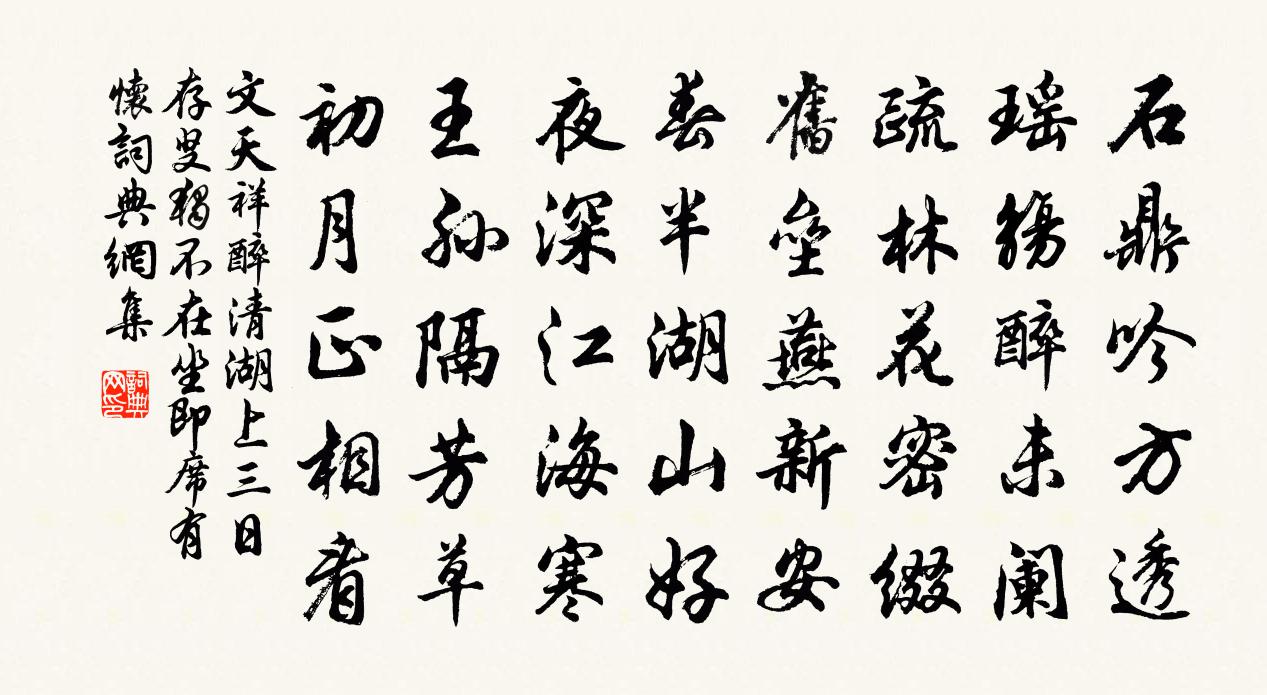 石鼎吟方透
瑶觞醉未阑
疏林花密缀
舊壘燕新安
春半湖山好
夜深江海寒
王孙隔芳草
初月正相看
文天祥醉清湖上三日
存叟獨不在坐即席有
懷詞典網集
詞典
网印